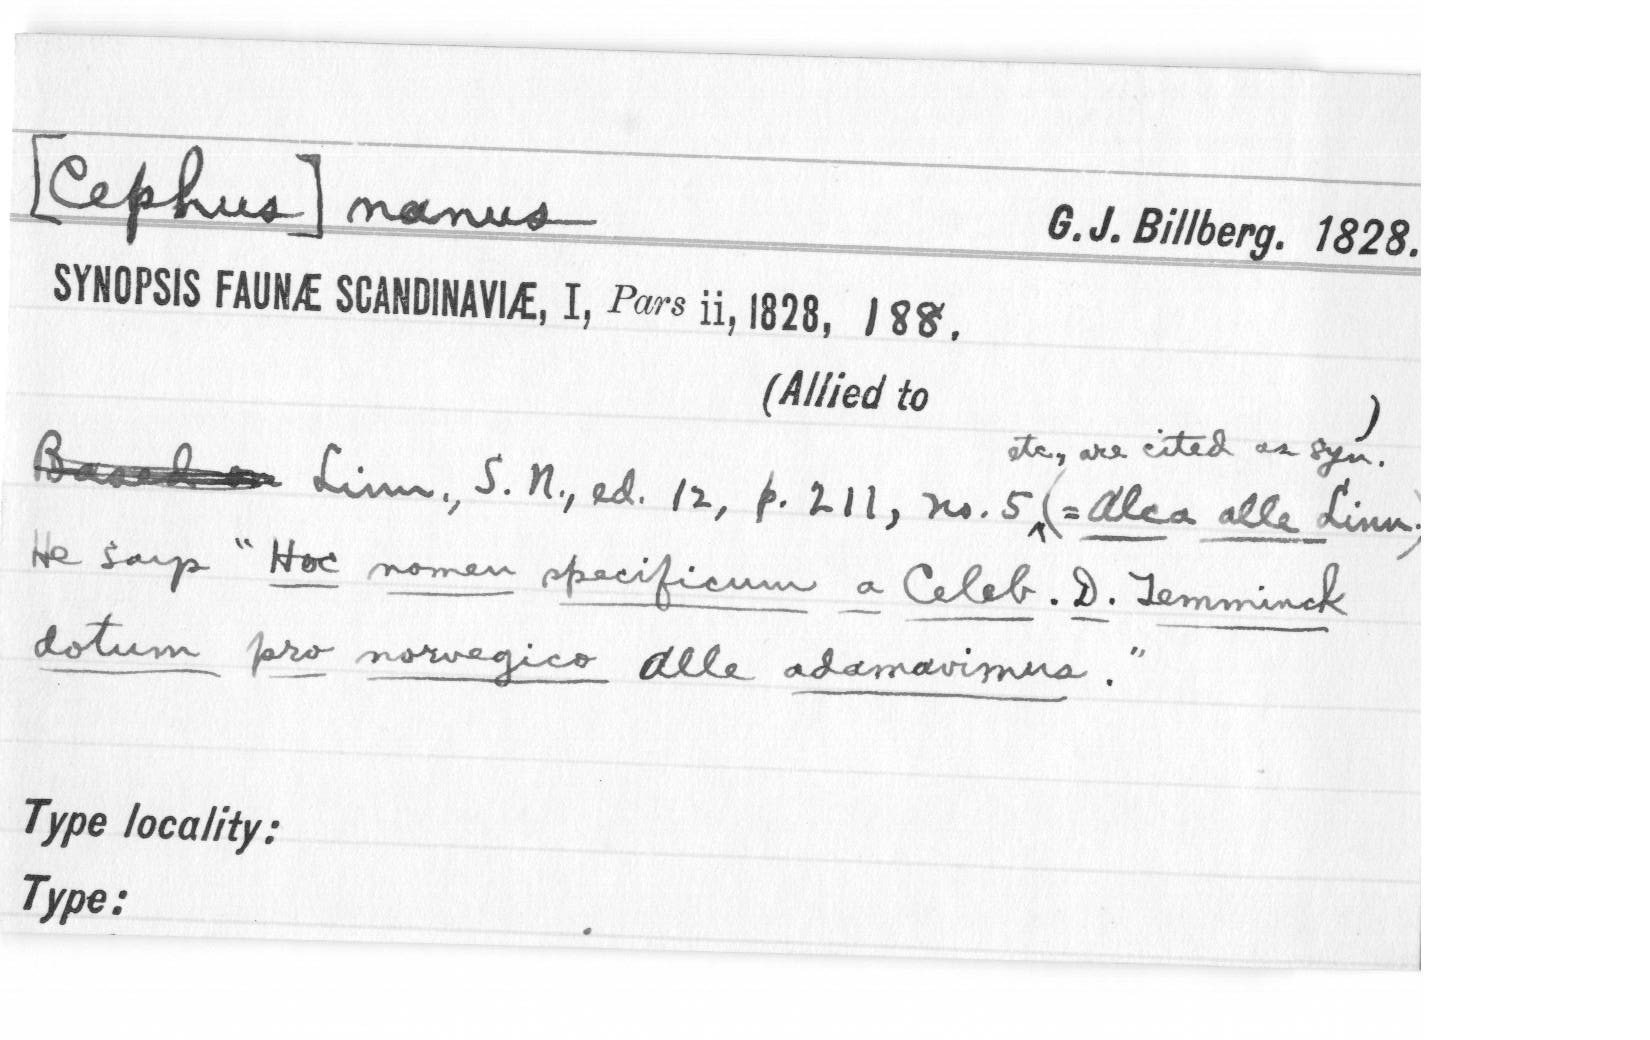 [Cephus] nanus G. J. Billberg. 1828.
SYNOPSIS FAUNÆ SCANDINAVIÆ, I, Pars ii, 1828, 188.
(Allied to )
etc, are cited as syn.
Based on Linn., S. N., ed. 12, p. 211, no. 5 (= Alca alle Linn.)
He says "Hoc nomen specificum a Celeb. D. Temminck
dotum pro norvegico Alle adamavimus."
Type locality:
Type: